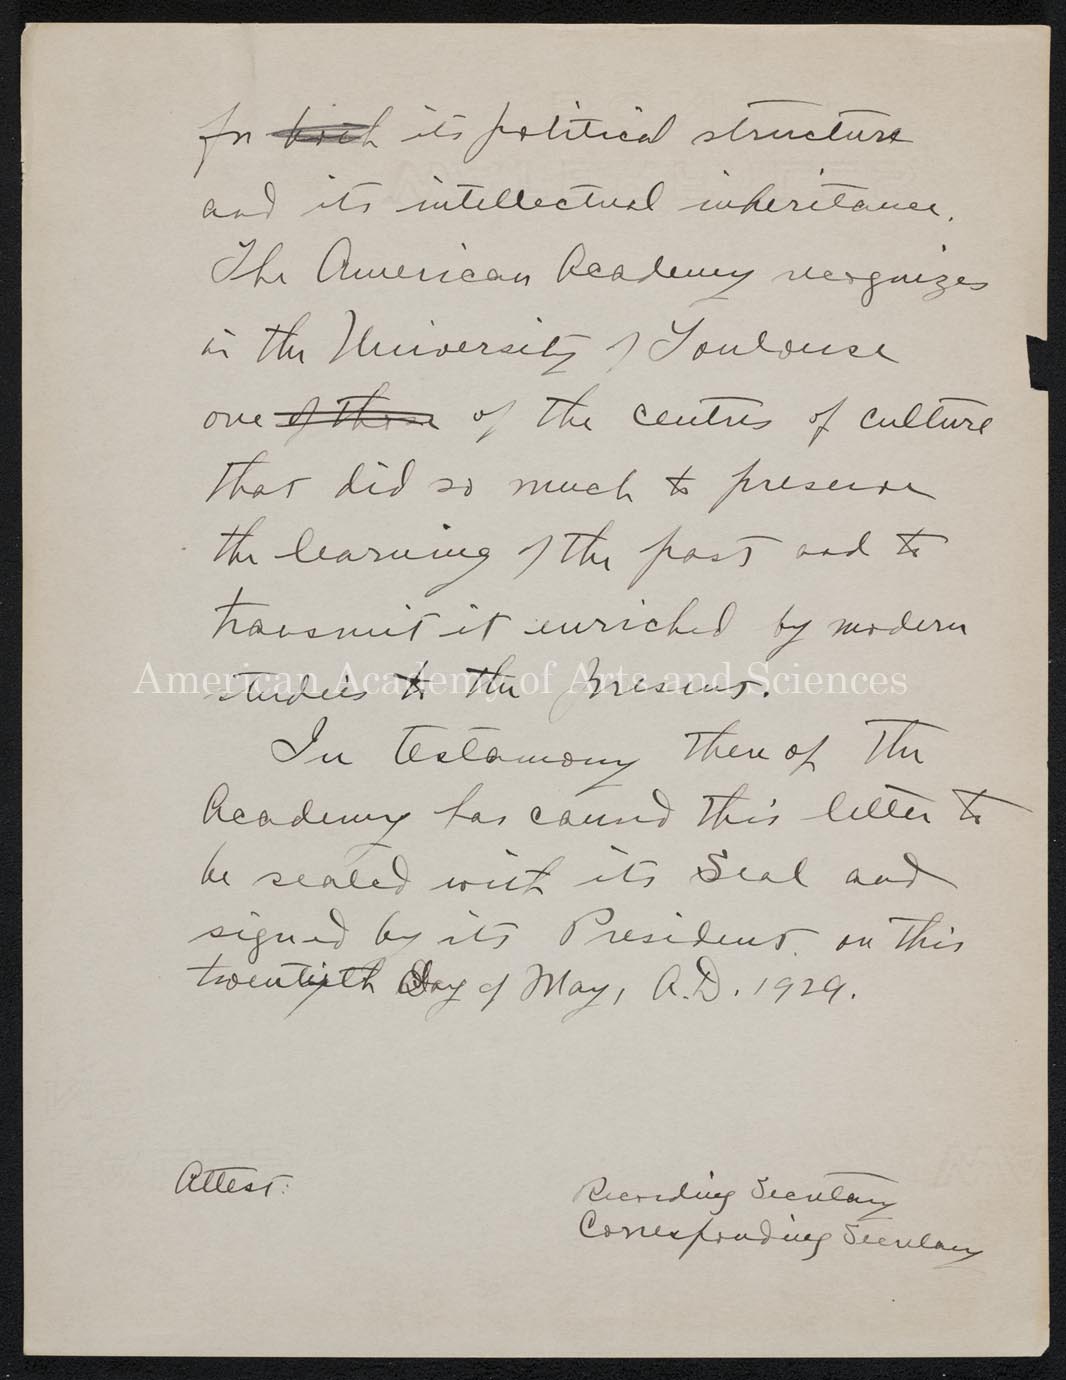 for ~~both~~ its political structure
and its intellectual inheritance.
The American Academy recognizes
in the University of Toulouse
one ~~of these~~ of the centres of culture
that did so much to preserve
the learning of the past and to
transmit it enriched by modern
studies to the present.
American Academy of Arts and Sciences
In testamony there of the
Academy has caused this letter to
be sealed with its Seal and
signed by its President on this
twentieth Day of May, A.D. 1929.
Attest:
Recording Secretary
Corresponding Secretary